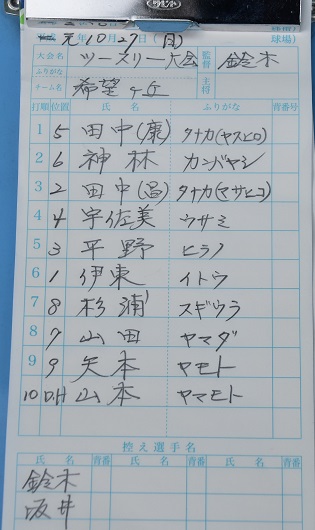 元年10月27日(日) 球場)
大会名 ツースリー大会 監督 鈴木
ふりがな
チーム名 希望ヶ丘 主将
打順 位置 氏名 ふりがな 背番号
1 5 田中(康) タナカ(ヤスヒロ)
2 6 神林 カンバヤシ
3 2 田中(昌) タナカ(マサヒコ)
4 4 宇佐美 ウサミ
5 3 平野 ヒラノ
6 1 伊東 イトウ
7 8 杉浦 スギウラ
8 7 山田 ヤマダ
9 9 矢本 ヤモト
10 D.H 山本 ヤマモト
控え選手名
氏名 背番 氏名 背番 氏名 背番
鈴木
坂井